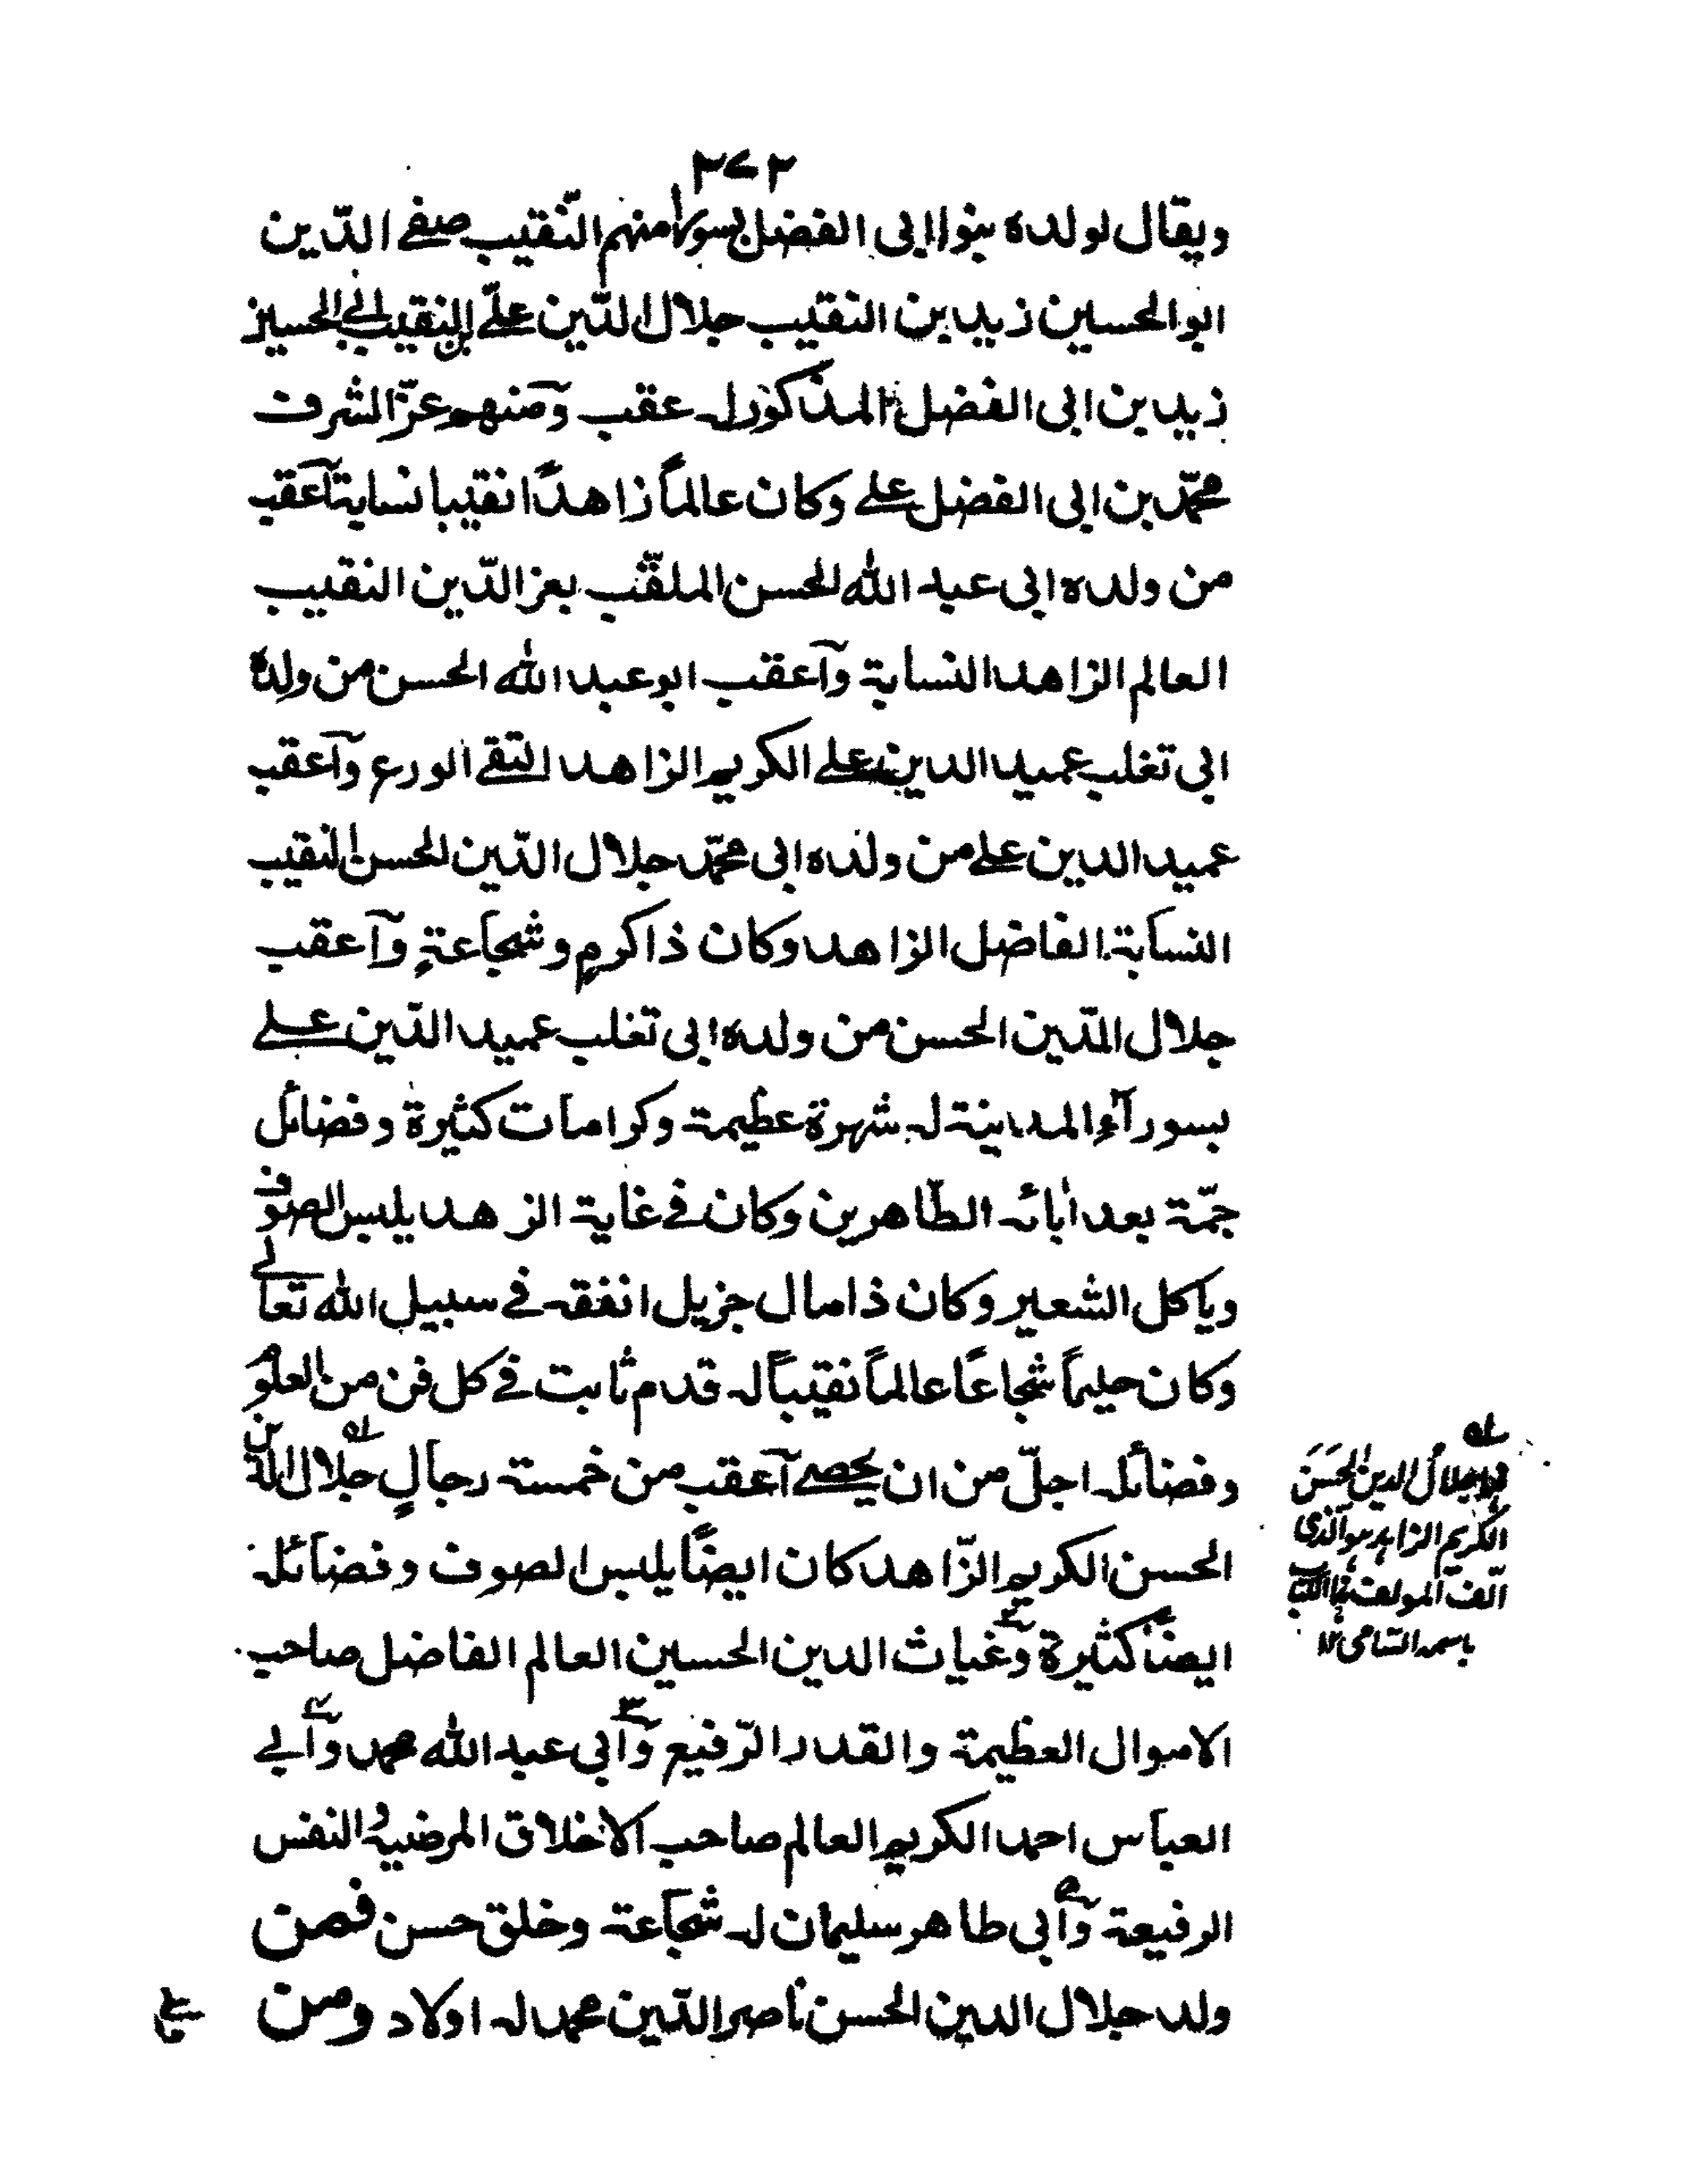 ٢٧٣
ويقال لولده بنوا ابى الفضل بسورا منهم النّقيب صفے الدّين
ابو الحسين زيد بن النقيب جلال الدّين علے بن النقيب ابى الحسين
زيد بن ابى الفضل المذكور له عقب ومنهم عزّ الشرف
محمّد بن ابى الفضل علے وكان عالماً زاهداً نقيبا نسابة آعقب
من ولده ابى عبد الله الحسن الملقّب بعز الدّين النقيب
العالم الزاهد النسابة وآعقب ابو عبد الله الحسن من ولده
ابى تغلب عميد الدين علے الكريم الزاهد التقے الورع وآعقب
عميد الدين علے من ولده ابى محمّد جلال الدّين الحسن النقيب
النسابة الفاضل الزاهد وكان ذا كرمٍ وشجاعةٍ وآعقب
جلال الدّين الحسن من ولده ابى تغلب عميد الدّين علے
بسورآء المدينة له شهرة عظيمة وكرامات كثيرة وفضائل
جمّة بعد اٰبائه الطّاهرين وكان فے غاية الزهد يلبس الصوف
وياكل الشعير وكان ذا مال جزيل انفقه فے سبيل الله تعالے
وكان حليماً شجاعاً عالماً نقيباً له قدم ثابت فے كل فن من العلوم
وفضائله اجلّ من ان يحصے آعقب من خمسة رجالٍ جلال الدّين
الحسن الكريم الزّاهد كان ايضاً يلبس الصوف وفضائله
ايضاً كثيرة وغياث الدين الحسين العالم الفاضل صاحب
الاموال العظيمة والقدر الرّفيع وآبى عبد الله محمد وآبے
العباس احمد الكريم العالم صاحب الاخلاق المرضية والنفس
الرفيعة وآبى طاهر سليمان له شجاعة وخلق حسن فمن
ولد جلال الدين الحسن ناصر الدّين محمد له اولاد ومن
جلال الدين الحسَن
الكريم الزاهد هو الذى
الف المولف هذا الكتاب
باسمه السّامى ١٢